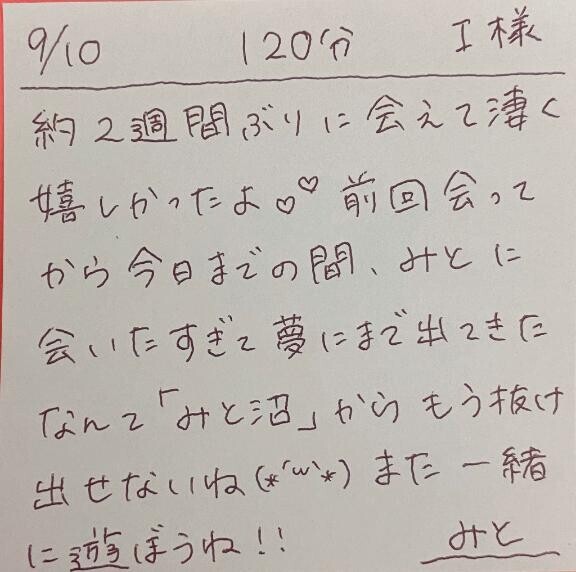 9/10 120分 I様
約2週間ぶりに会えて凄く
嬉しかったよ♡♡ 前回会って
から今日までの間、みとに
会いたすぎて夢にまで出てきた
なんて「みと沼」からもう抜け
出せないね(*´ω`*) また一緒
に遊ぼうね!! みと